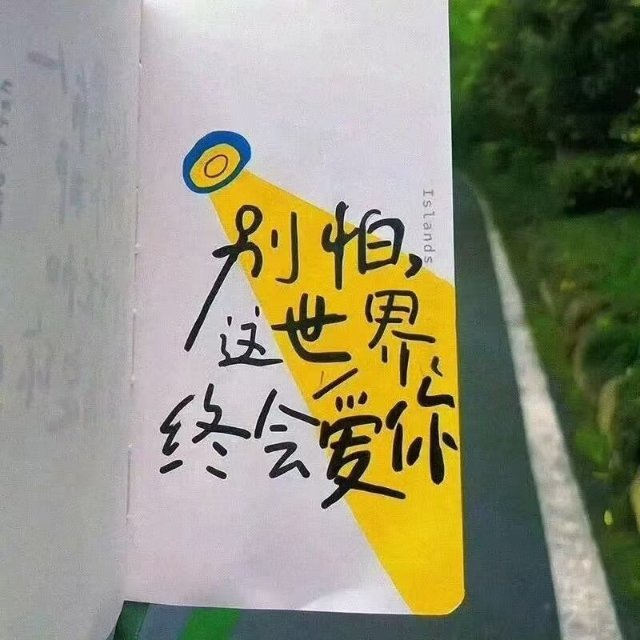 Islands
别怕,
这世界
终会爱你